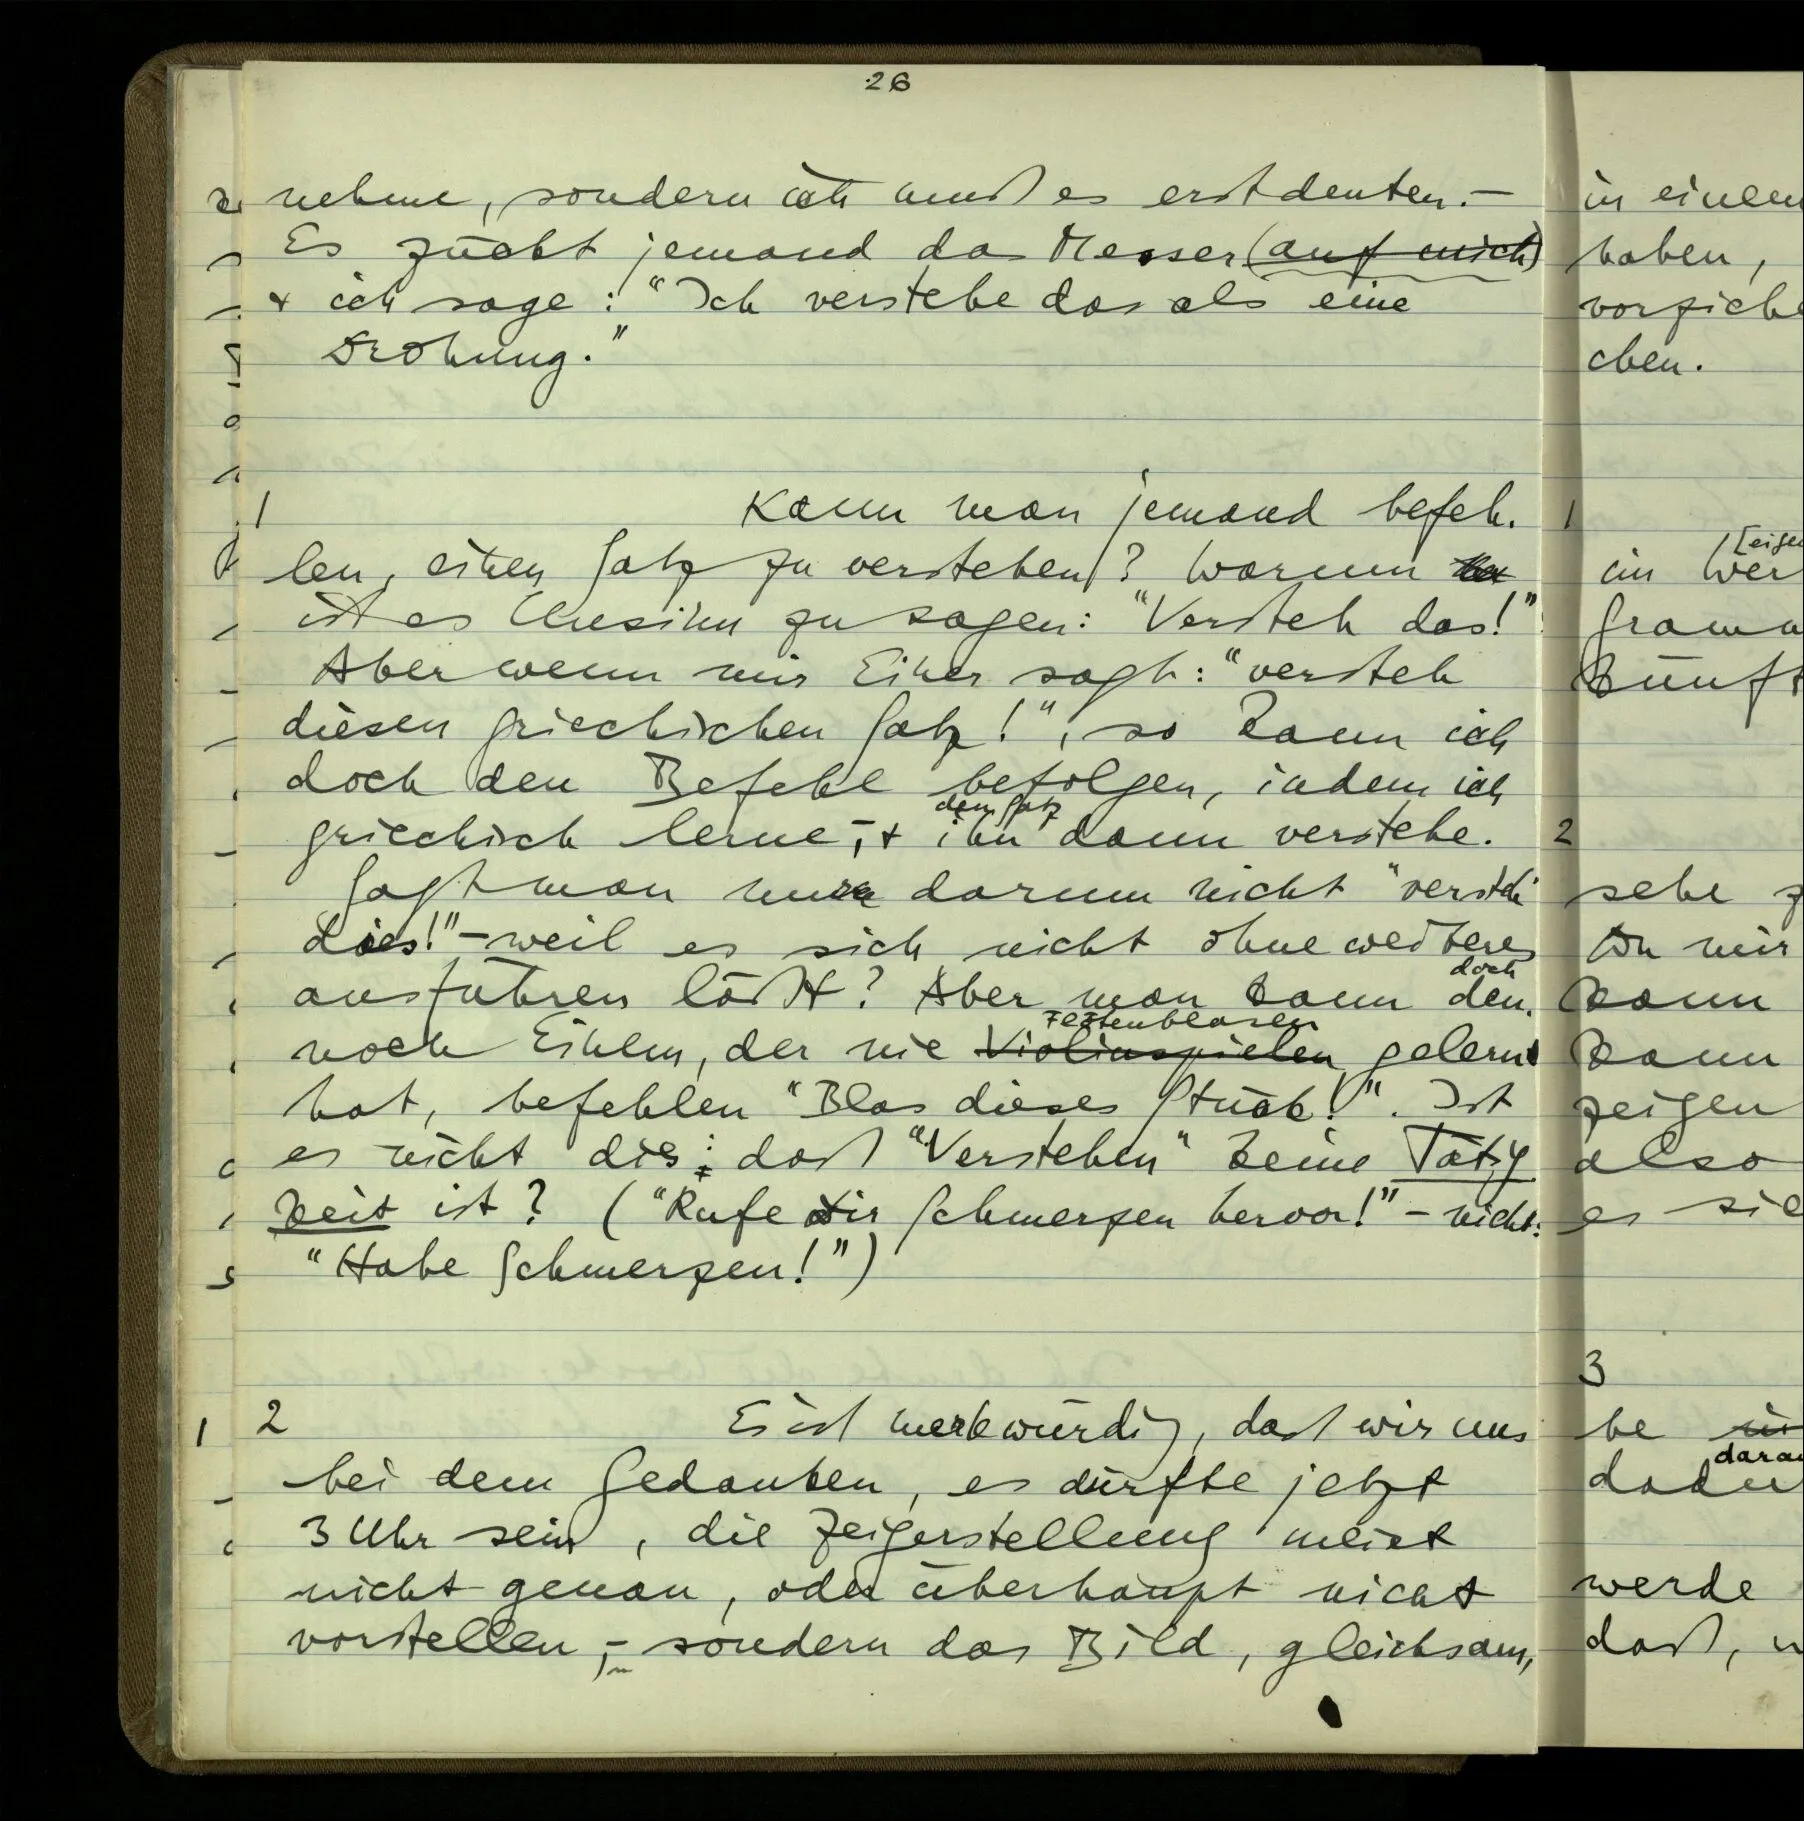 26
nehme, sondern ich muß es erst deuten. –
Es zückt jemand das Messer (auf mich)
+ ich sage: "Ich verstehe das als eine
Drohung."
1
Kann man jemand befeh-
len, einen Satz zu verstehen? Warum
ist es Unsinn zu sagen: "Versteh das!"
Aber wenn mir Einer sagt: "versteh
diesen griechischen Satz!", so kann ich
doch den Befehl befolgen, indem ich
den Satz
griechisch lerne, – + ihn dann verstehe.
Sagt man nur darum nicht "versteh
dies!" – weil es sich nicht ohne weiteres
doch
ausführen läßt? Aber man kann den-
Flötenblasen
noch Einem, der nie Violinspielen gelernt
hat, befehlen "Blas dieses Stück!". Ist
es nicht dies: daß "Verstehen" keine Tätig
keit ist? ("Rufe dir Schmerzen hervor!" – nicht:
"Habe Schmerzen!")
2
Es ist merkwürdig, daß wir uns
bei dem Gedanken, es dürfte jetzt
3 Uhr sein, die Zeigerstellung meist
nicht genau, oder überhaupt nicht
vorstellen, – sondern das Bild, gleichsam,
in einem
haben,
vorziehe
chen.
1
[eige
im Wer
Gramm
künft
2
sehe z
Du mir
kann
kann
zeigen
also
es sie
3
be
darau
dadu
werde
daß,
1